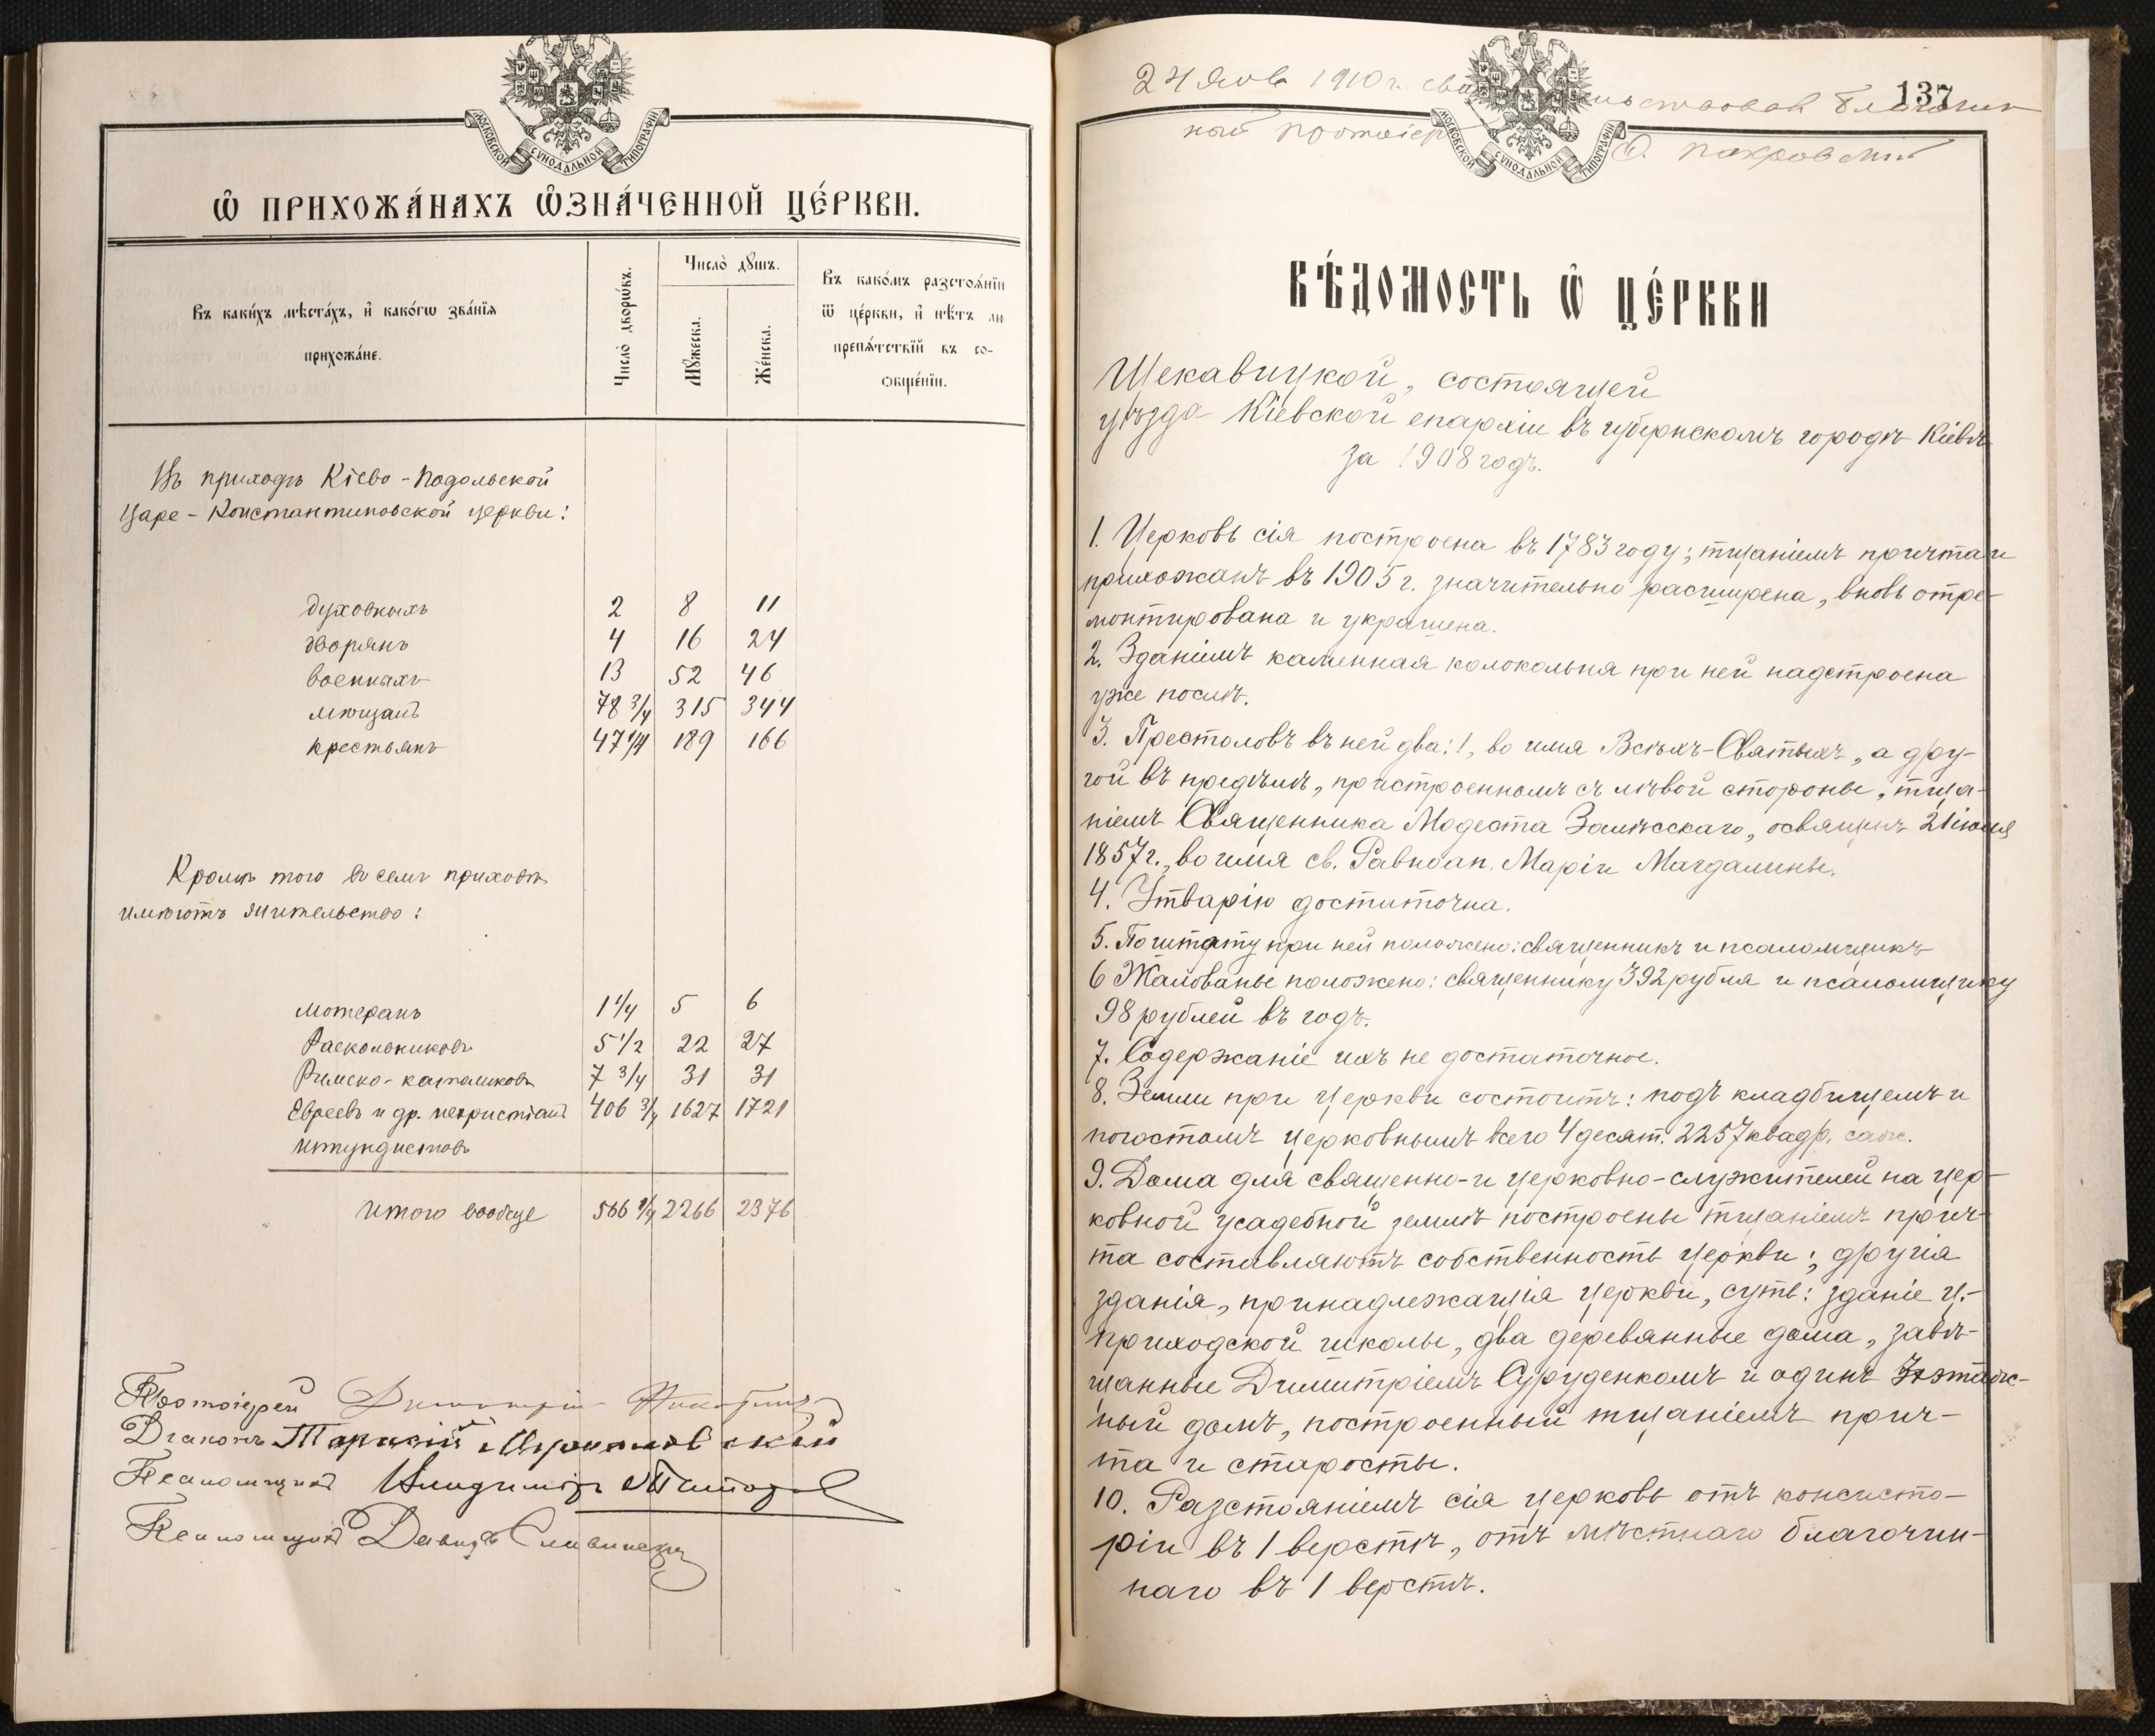 МОСКОВСКОЙ СУНОДАЛЬНОЙ ТИПОГРАФІИ
Ѽ ПРИХОЖА́НАХЪ Ѡ҆ЗНА́ЧЕННОЙ ЦЕ́РКВИ.
Въ каки́хъ мѣста́хъ, и҆ како́гѡ зва́нїѧ
прихожа́не.
Число̀ дворѡ́въ.
Число̀ дꙋ́шъ.
Мꙋ́жеска.
Же́нска.
Въ како́мъ разстоѧ́нїи
ѿ це́ркви, и҆ нѣ́тъ ли
препѧ́тствїй въ со-
ѻбще́нїи.
Въ приходѣ Кіево-Подольской
Царе-Константиновской церкви:
духовныхъ 2 8 11
дворянъ 4 16 24
военныхъ 13 52 46
мѣщанъ 78 3/4 315 344
крестьянъ 47 1/4 189 166
Кромѣ того въ семъ приходѣ
имѣютъ жительство:
лютеранъ 1 1/4 5 6
Раскольниковъ 5 1/2 22 27
Римско-католиковъ 7 3/4 31 31
Евреевъ и др. нехристіанъ 406 3/4 1627 1721
штундистовъ
Итого вообще 566 1/4 2266 2376
Протоіерей Димитрій
Діаконъ Тарасій
Псаломщикъ Владиміръ
Псаломщикъ Давидъ Сливинскій
24 Янв 1910 г. Благочин
137
ный протоіерей Покровскій
МОСКОВСКОЙ СУНОДАЛЬНОЙ ТИПОГРАФІИ
ВѢ́ДОМОСТЬ Ѽ ЦЕ́РКВИ
Щекавицкой, состоящей
уѣзда Кіевской епархіи въ губернскомъ городѣ Кіевѣ
за 1908 годъ.
1. Церковь сія построена въ 1783 году; тщаніемъ причта и
прихожанъ въ 1905 г. значительно расширена, вновь отре-
монтирована и украшена.
2. Зданіемъ каменная колокольня при ней надстроена
уже послѣ.
3. Престоловъ въ ней два: 1, во имя Всѣхъ-Святыхъ, а дру-
гой въ предѣлѣ, пристроенномъ съ лѣвой стороны, тща-
ніемъ Священника Модеста Залѣсскаго, освященъ 21 іюля
1857 г., во имя св. Равноап. Маріи Магдалины.
4. Утварію достаточна.
5. По штату при ней положено: священникъ и псаломщикъ
6 Жалованье положено: священнику 392 рубля и псаломщику
98 рублей въ годъ.
7. Содержаніе ихъ не достаточное.
8. Земли при Церкви состоитъ: подъ кладбищемъ и
погостомъ церковнымъ всего 4 десят. 2257 квадр. саж.
9. Дома для священно-и церковно-служителей на цер-
ковной усадебной землѣ построены тщаніемъ прич-
та составляютъ собственность Церкви; другія
зданія, принадлежащія Церкви, суть: зданіе ц.-
приходской школы, два деревянные дома, завѣ-
щанные Димитріемъ Суруденкомъ и одинъ этаж-
ный домъ, построенный тщаніемъ прич-
та и старосты.
10. Разстояніемъ сія церковь отъ консисто-
ріи въ 1 верстѣ, отъ мѣстнаго благочин-
наго въ 1 верстѣ.